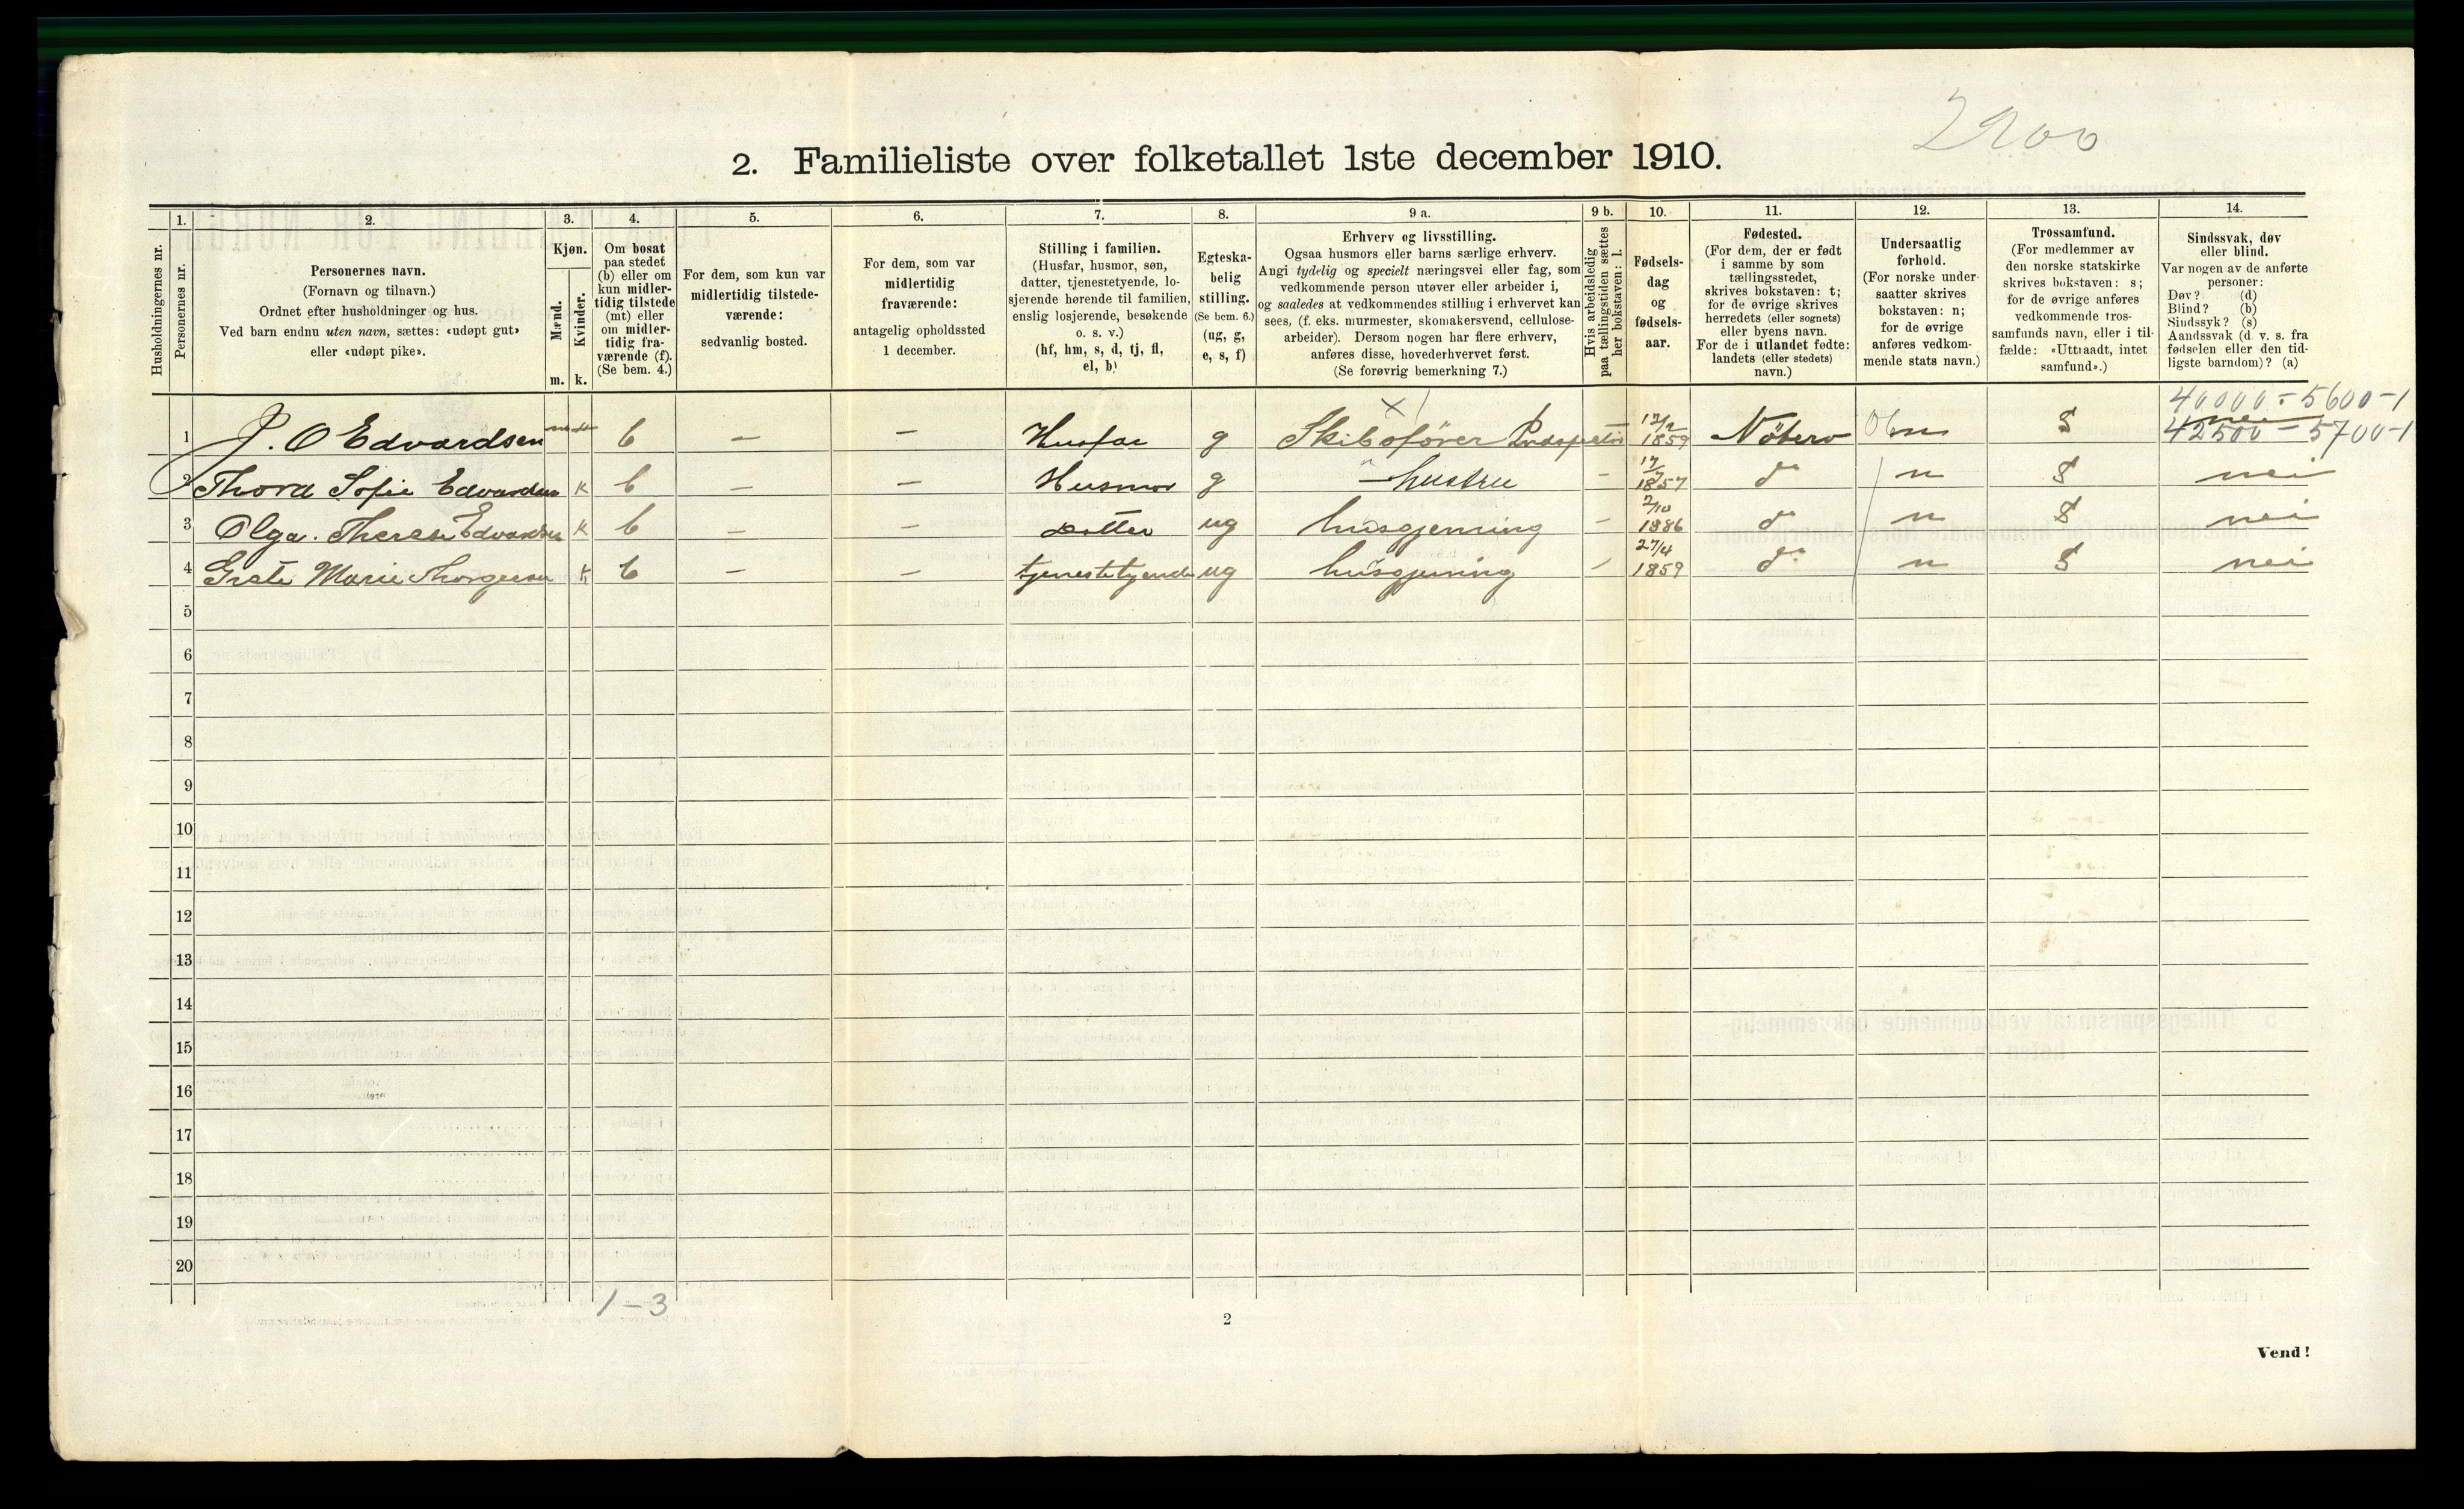 2900
2. Familieliste over folketallet 1ste december 1910.
Husholdningernes nr.
1.
Personernes nr.
2.
Personernes navn.
(Fornavn og tilnavn.)
Ordnet efter husholdninger og hus.
Ved barn endnu uten navn, sættes: «udøpt gut»
eller «udøpt pike».
3.
Kjøn.
Mænd.
Kvinder.
m. k.
4.
Om bosat
paa stedet
(b) eller om
kun midler-
tidig tilstede
(mt) eller
om midler-
tidig fra-
værende (f).
(Se bem. 4.)
5.
For dem, som kun var
midlertidig tilstede-
værende:
sedvanlig bosted.
6.
For dem, som var
midlertidig
fraværende:
antagelig opholdssted
1 december.
7.
Stilling i familien.
(Husfar, husmor, søn,
datter, tjenestetyende, lo-
sjerende hørende til familien,
enslig losjerende, besøkende
o. s. v.)
(hf, hm, s, d, tj, fl,
el, b)
8.
Egteska-
belig
stilling.
(Se bem. 6.)
(ug, g,
e, s, f)
9 a.
Erhverv og livsstilling.
Ogsaa husmors eller barns særlige erhverv.
Angi tydelig og specielt næringsvei eller fag, som
vedkommende person utøver eller arbeider i,
og saaledes at vedkommendes stilling i erhvervet kan
sees, (f. eks. murmester, skomakersvend, cellulose-
arbeider). Dersom nogen har flere erhverv,
anføres disse, hovederhvervet først.
(Se forøvrig bemerkning 7.)
9 b.
Hvis arbeidsledig
paa tællingstiden sættes
her bokstaven: l.
10.
Fødsels-
dag
og
fødsels-
aar.
11.
Fødested.
(For dem, der er født
i samme by som
tællingsstedet,
skrives bokstaven: t;
for de øvrige skrives
herredets (eller sognets)
eller byens navn.
For de i utlandet fødte:
landets (eller stedets)
navn.)
12.
Undersaatlig
forhold.
(For norske under-
saatter skrives
bokstaven: n;
for de øvrige
anføres vedkom-
mende stats navn.)
13.
Trossamfund.
(For medlemmer av
den norske statskirke
skrives bokstaven: s;
for de øvrige anføres
vedkommende tros-
samfunds navn, eller i til-
fælde: «Uttraadt, intet
samfund».)
14.
Sindssvak, døv
eller blind.
Var nogen av de anførte
personer:
Døv? (d)
Blind? (b)
Sindssyk? (s)
Aandssvak (d. v. s. fra
fødselen eller den tid-
ligste barndom)? (a)
40000 - 5600 - 1
1 J. O Edvardsen b — — Husfar g Skibsfører 1859 Nøterø n S nei
42500 - 5700 - 1
2 Thora Sofie Edvardsen k b — — Husmor g hustru - 1857 do n S nei
3 Olga Therese Edvardsen k b — — Datter ug husgjerning - 2/10 1886 do n S nei
4 Grete Marie Thorgersen k b — — tjenestetyende ug husgjerning - 27/4 1859 do n S nei
5
6
7
8
9
10
11
12
13
14
15
16
17
18
19
20
1 — 3
2
Vend!